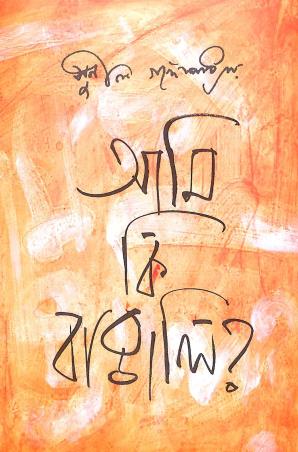 সুনীল গঙ্গোপাধ্যায়
আমি
কি
বাঙালি?